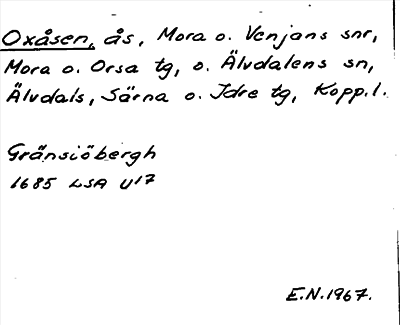 Oxåsen, ås, Mora o. Venjans snr,
Mora o. Orsa tg, o. Älvdalens sn,
Älvdals, Särna o. Idre tg, Kopp.l.
Gränsiöbergh
1685 LSA U17
E.N.1967.